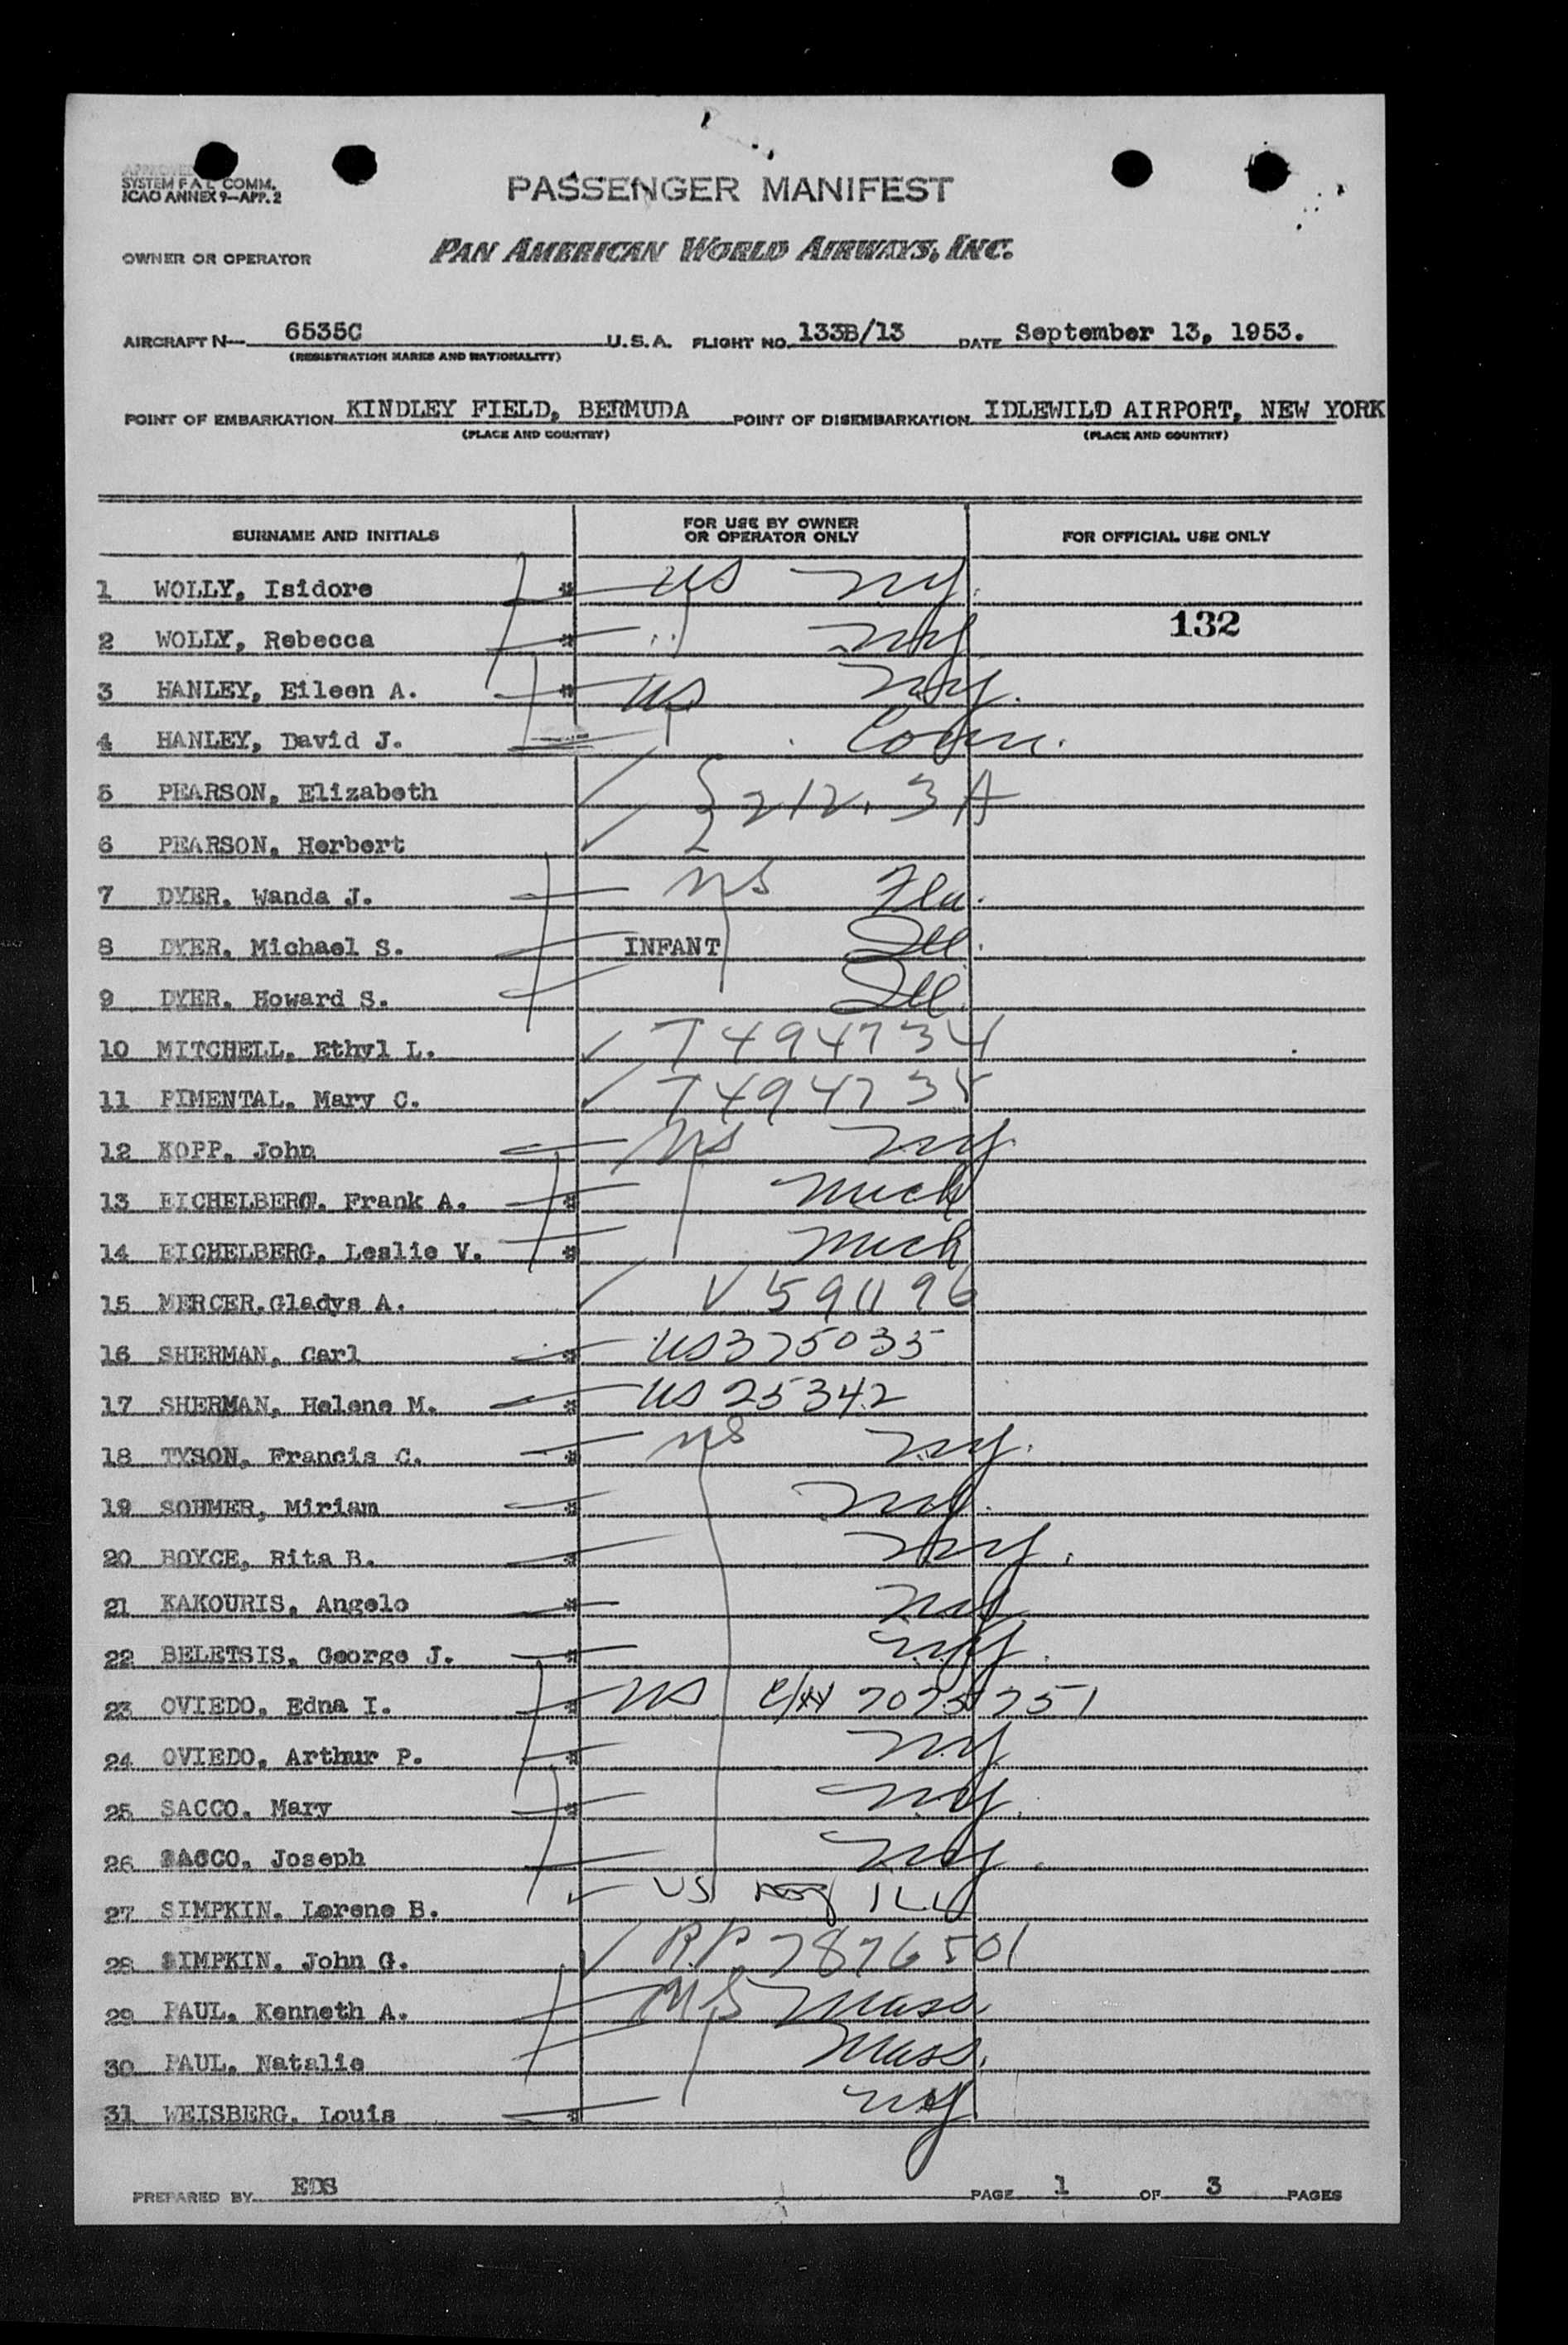 SYSTEM F A L COMM.
ICAO ANNEX 9—APP. 2
PASSENGER MANIFEST
OWNER OR OPERATOR PAN AMERICAN WORLD AIRWAYS, INC.
AIRCRAFT N— 6535C U.S.A. FLIGHT NO. 133B/13 DATE September 13, 1953.
(REGISTRATION MARKS AND NATIONALITY)
POINT OF EMBARKATION KINDLEY FIELD, BERMUDA POINT OF DISEMBARKATION IDLEWILD AIRPORT, NEW YORK
(PLACE AND COUNTRY) (PLACE AND COUNTRY)
SURNAME AND INITIALS FOR USE BY OWNER OR OPERATOR ONLY FOR OFFICIAL USE ONLY
1 WOLLY, Isidore * US NY.
132
2 WOLLY, Rebecca * " NY
3 HANLEY, Eileen A. * US NY.
4 HANLEY, David J. Conn.
5 PEARSON, Elizabeth ✓ 212.3A
6 PEARSON, Herbert ✓
7 DYER, Wanda J. US Fla.
8 DYER, Michael S. INFANT Ill.
9 DYER, Howard S. Ill.
10 MITCHELL, Ethyl L. ✓ T494734
11 PIMENTAL, Mary C. ✓ T494735
12 KOPP, John US NY.
13 EICHELBERG, Frank A. * Mich
14 EICHELBERG, Leslie V. * Mich
15 MERCER,Gladys A. ✓ V591196
16 SHERMAN, Carl * US375035
17 SHERMAN, Helene M. * US 25342
18 TYSON, Francis C. * US NY.
19 SOHMER, Miriam * NY.
20 BOYCE, Rita B. * NY.
21 KAKOURIS, Angelo * NY
22 BELETSIS, George J. * NY.
23 OVIEDO, Edna I. * US
24 OVIEDO, Arthur P. * NY
25 SACCO, Mary * NY.
26 SACCO, Joseph NY.
27 SIMPKIN, Lorene B. ✓ US ILL
28 SIMPKIN, John G. ✓ R.P. 7876501
29 PAUL, Kenneth A. US Mass.
30 PAUL, Natalie Mass.
31 WEISBERG, Louis * NY
PREPARED BY EDS PAGE 1 OF 3 PAGES